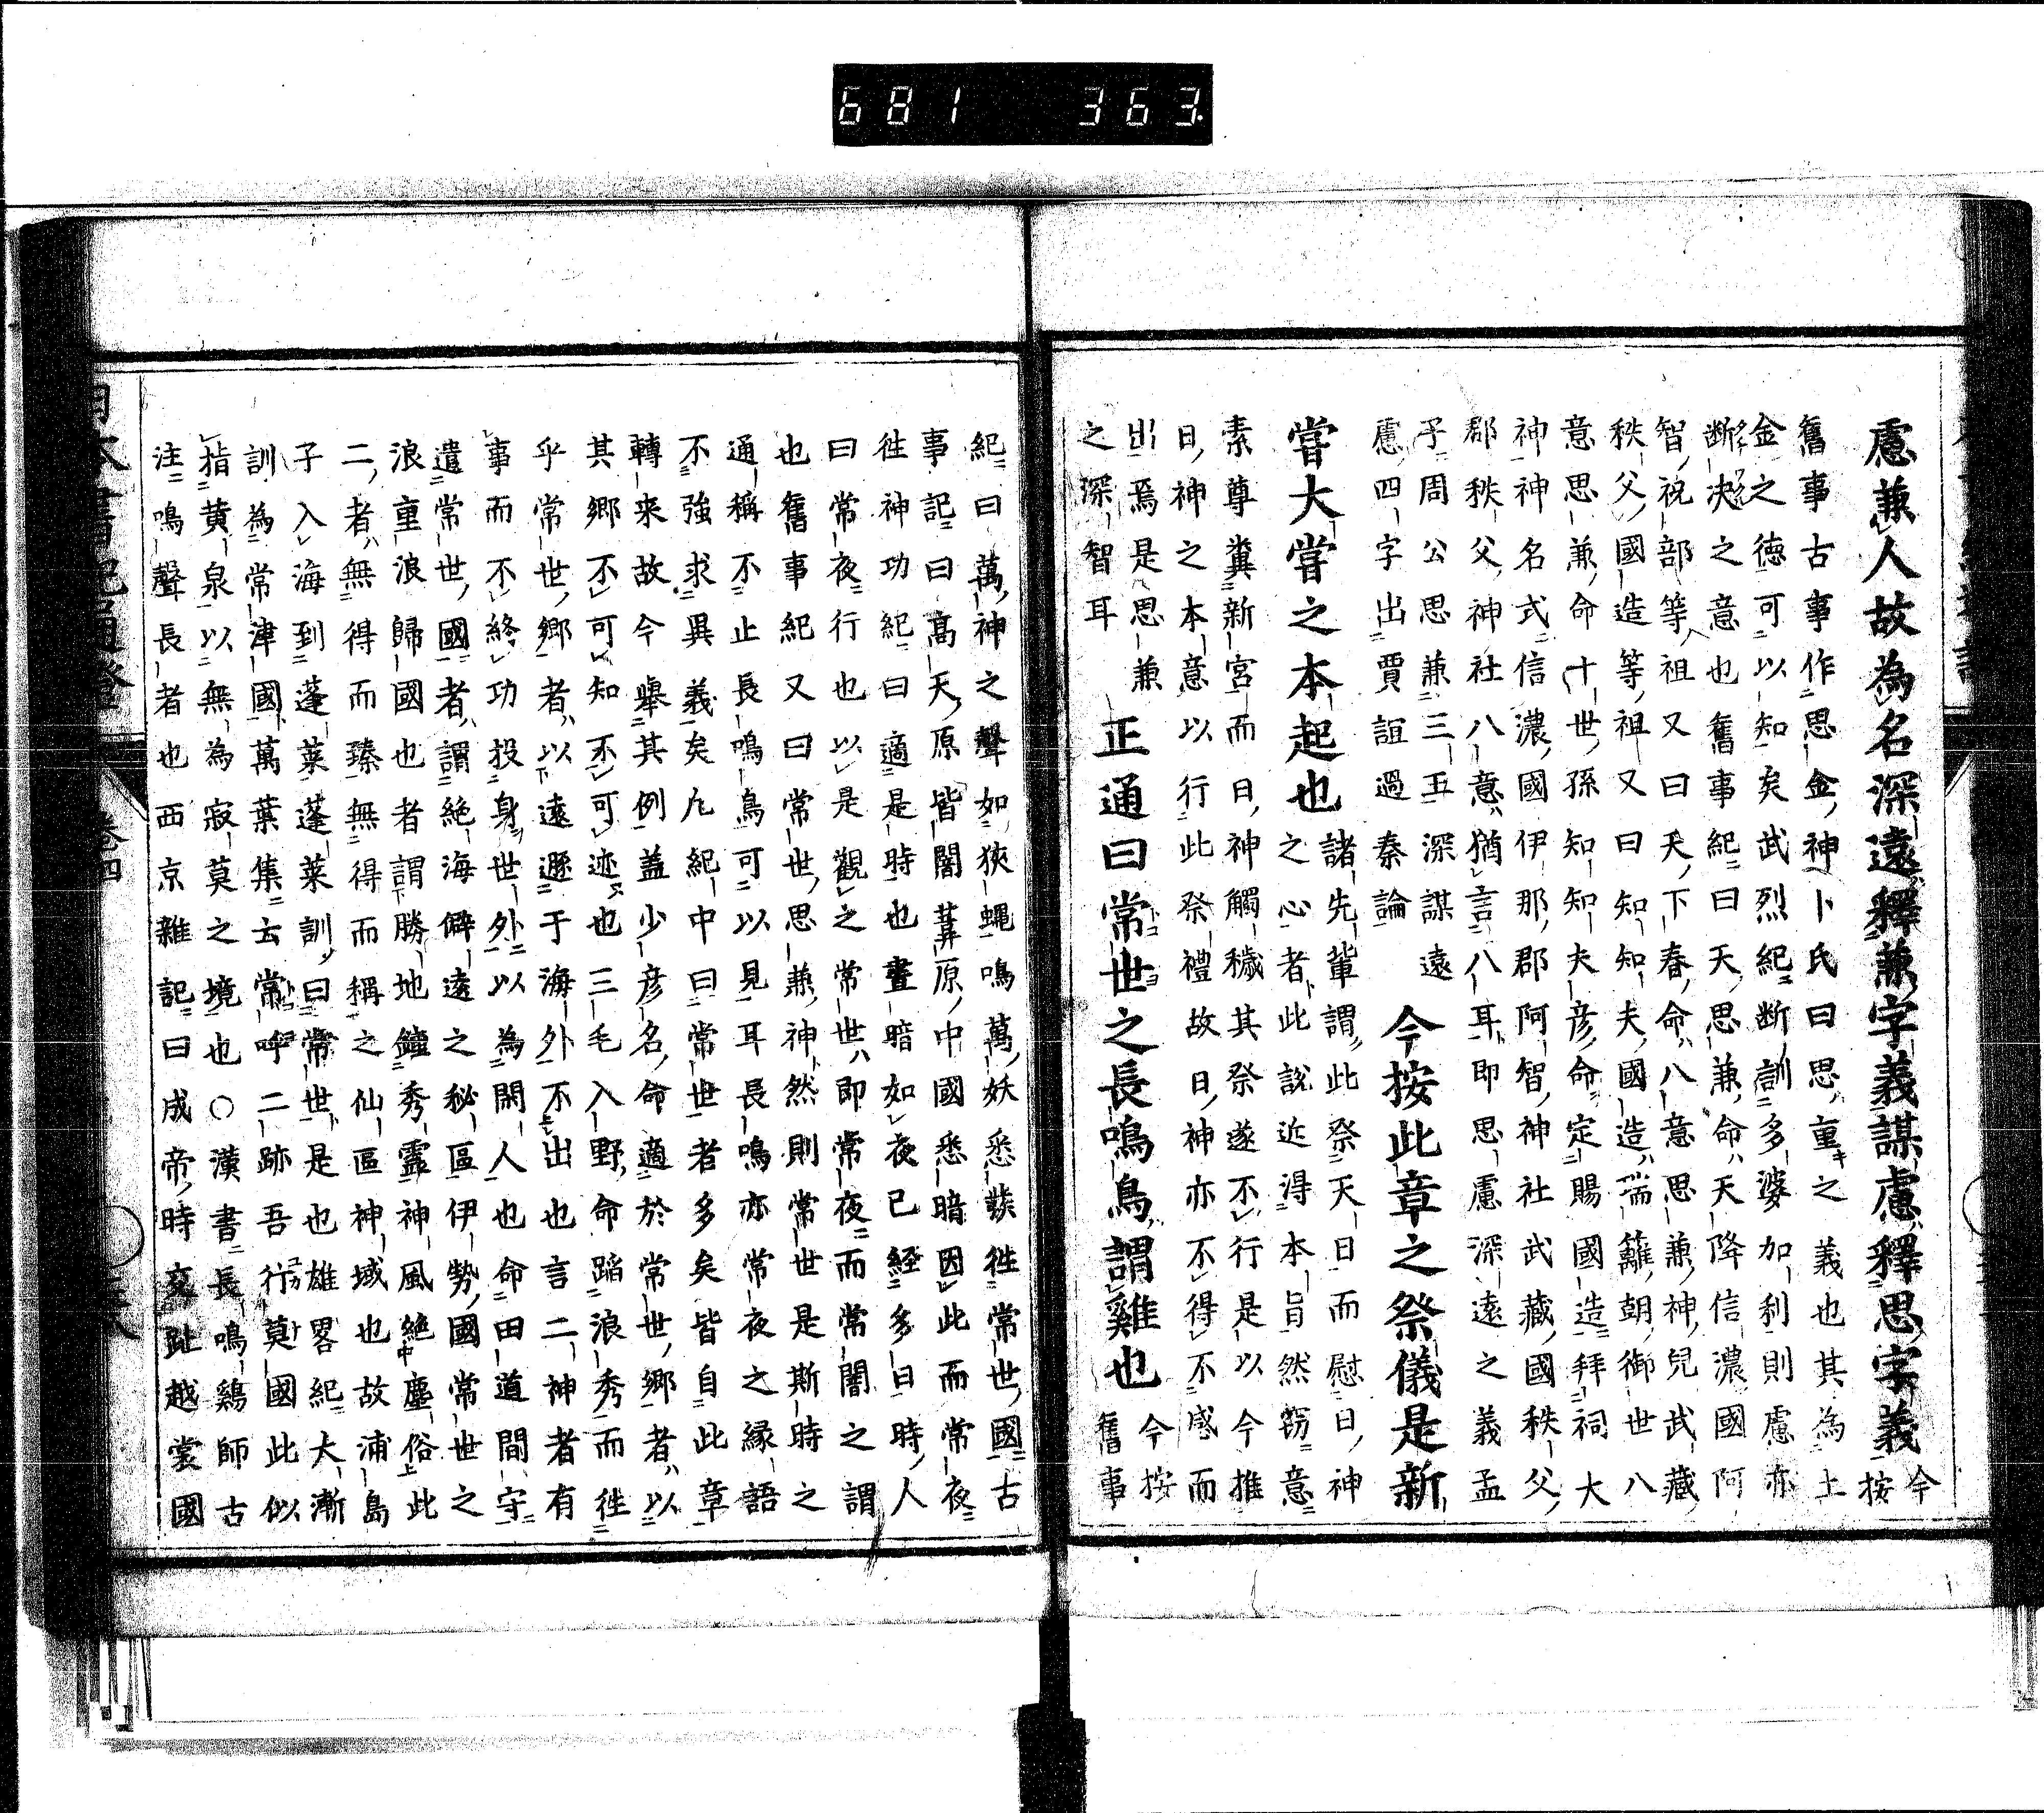 681 363
慮兼人故為名深遠釋兼字義謀慮釋思字義今
按
舊事古事作思金神卜氏曰思重之義也其為土
金之徳可以知矣武烈紀断訓多婆加利則慮亦
断決之意也舊事紀曰天思兼命天降信濃國阿
智祝部等祖又曰天下春命八意思兼神兒武藏
秩父國造等祖又曰知知夫國造瑞籬朝御世八
意思兼命十世孫知知夫彦命定賜國造拜祠大
神神名式信濃國伊那郡阿智神社武藏國秩父
郡秩父神社八意猶言八耳即思慮深遠之義孟
子周公思兼三五深謀遠
慮四字出賈誼過秦論
今按此章之祭儀是新
嘗大嘗之本起也
諸先輩謂此祭天日而慰日神
之心者此説近得本旨然竊意
素尊糞新宮而日神觸穢其祭遂不行是以今推
日神之本意以行此祭禮故日神亦不得不感而
出焉是思兼
之深智耳
正通曰常世之長鳴鳥謂雞也
今按
舊事
紀曰萬神之聲如狹蝿鳴萬妖悉發徃常世國古
事記曰高天原皆闇葦原中國悉暗因此而常夜
徃神功紀曰適是時也晝暗如夜已経多日時人
曰常夜行也以是觀之常世即常夜而常闇之謂
也舊事紀又曰常世思兼神然則常世是斯時之
通稱不止長鳴鳥可以見耳長鳴亦常夜之縁語
不強求異義矣凡紀中曰常世者多矣皆自此章
轉来故今舉其例盖少彦名命適於常世郷者以
其郷不可知不可迹也三毛入野命蹈浪秀而徃
乎常世郷者以遠遯于海外不出也言二神者有
事而不終功投身世外以為閑人也命田道間守
遣常世國者謂絶海僻遠之秘區伊勢國常世之
浪重浪歸國也者謂勝地鍾秀靈神風絶塵俗此
二者無得而臻無得而稱之仙區神域也故浦島
子入海到蓬莱蓬莱訓曰常世是也雄畧紀大漸
訓為常津國萬葉集去常呼二跡吾行莫國此似
指黄泉以無為寂莫之境也〇漢書長鳴鷄師古
注鳴聲長者也西京雜記曰成帝時交趾越裳國
卷四